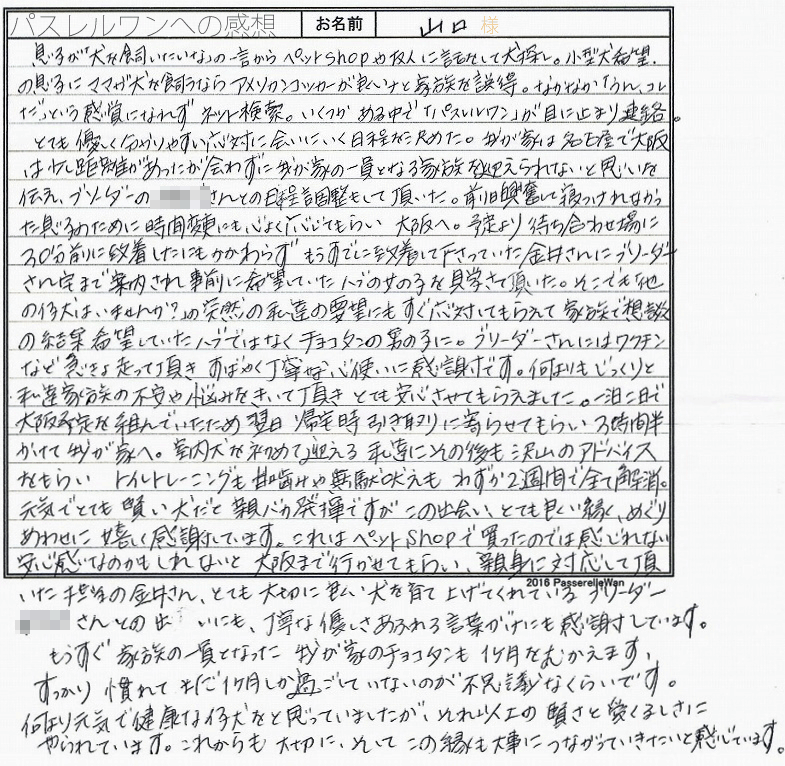 パスレルワンへの感想 お名前 山口 様
息子が「犬を飼いたいな」の一言からペットshopや友人に話をして犬探し。小型犬希望
の息子にママが犬を飼うならアメリカンコッカーが良いナと家族を説得。なかなか「うん、コレ
だ」という感覚になれず ネット検索。いくつか ある中で「パスレルワン」が目に止まり連絡。
とても優しく分かりやすい応対に会いにいく日程を決めた。我が家は名古屋で大阪
は少し距離があったが会わずに我が家の一員となる家族を迎えられないと思いを
伝え、ブリーダーの さんとの日程調整もして頂いた。前日興奮して寝つけれなかっ
た息子のために時間変更にも心よく応じてもらい 大阪へ。予定より 待ち合わせ場に
30分前に到着したにもかかわらず もうすでに到着して下さっていた金井さんにブリーダー
さん宅まで案内され事前に希望していたハブの女の子を見学させて頂いた。そこでも「他
の仔犬はいませんか?」の突然の私達の要望にもすぐ応対してもらえて家族で想談
の結果 希望していたハブではなくチョコタンの男の子に。ブリーダーさんにはワクチン
など急きょ走って頂き すばやく丁寧な心使いに感謝です。何よりもじっくりと
私達家族の不安や悩みをきいて頂き とても安心させてもらえました。一泊二日で
大阪予定を組んでいたため 翌日 帰宅時引き取りに寄らせてもらい 3時間半
かけて我が家へ。室内犬を初めて迎える 私達にその後も 沢山のアドバイス
をもらい トイレトレーニングも甘歯みや無駄吠えも わずか2週間で全て解消。
元気でとても賢い犬だと 親バカ発揮ですが この出会い、とても良い縁、めぐり
あわせに 嬉しく感謝しています。これはペットshopで買ったのでは感じれない
安心感なのかもしれないと 大阪まで行かせてもらい、親身に対応して頂
2016 PasserelleWan
いた担当の金井さん、とても大切に 良い犬を育て上げてくれている ブリーダー
さんとの出 いにも、丁寧な優しさあふれる言葉がけにも感謝しています。
もうすぐ 家族の一員となった 我が家のチョコタンも1ヶ月をむかえます、
すっかり慣れて まだ1ヶ月しか過ごしていないのが不思議なくらいです。
何より元気で健康な仔犬をと思っていましたが、それ以上の賢さと愛くるしさに
やられています。これからも 大切に、そして この縁も大事につなげていきたいと感じています。